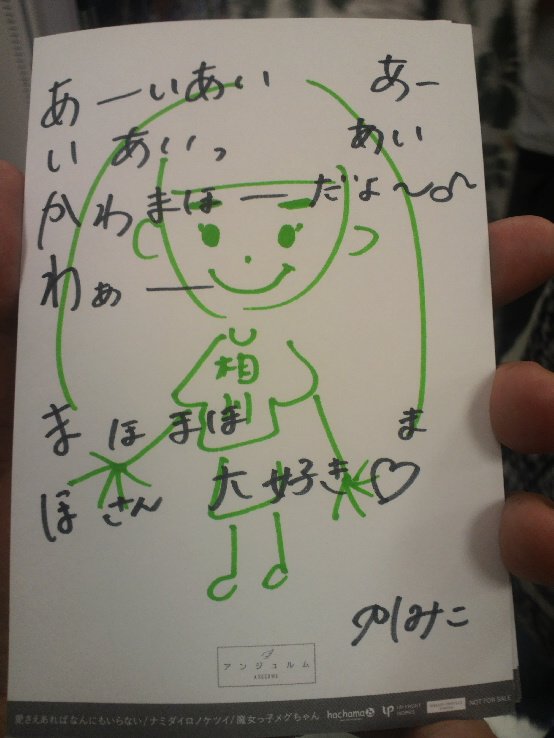 あーいあい あー
い あいっ あい
かわまほーだよ〜♂
わぁー
相川
まほまほ ま
ほさん 大好き♡
アンジュルム
ANGERME
愛さえあればなんにもいらない/ナミダイロノケツイ/魔女っ子メグちゃん hachama UP UP-FRONT WORKS NOT FOR SALE